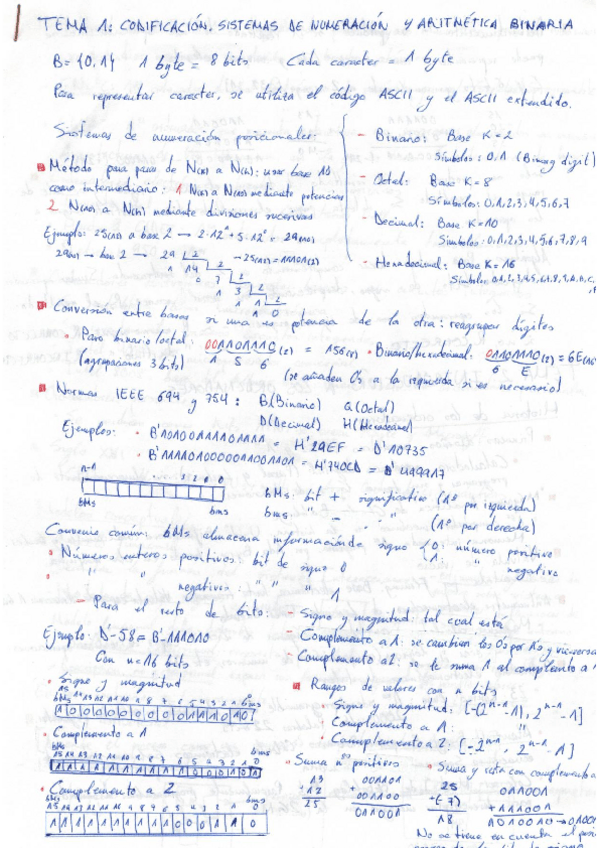 TEMA 1: CODIFICACIÓN, SISTEMAS DE NUMERACIÓN Y ARITMÉTICA BINARIA
B={0,1} 1 byte = 8 bits Cada caracter = 1 byte
Para representar caracter, se utiliza el código ASCII y el ASCII extendido.
Sistemas de numeración posicionales:
- Binario: Base K=2
Símbolos: 0,1 (Binary digit)
- Octal: Base K=8
Símbolos: 0,1,2,3,4,5,6,7
- Decimal: Base K=10
Símbolos: 0,1,2,3,4,5,6,7,8,9
- Hexadecimal: Base K=16
Método para pasar de a : usar base 10
como intermediario: 1. mediante potencias
2. mediante divisiones sucesivas
Ejemplo: a base 2 →
→ base 2 → 29 2
14 2
7 2
3 2
1 2
1 0
Conversión entre bases si una es potencia de la otra: reagrupar dígitos
• Para binario/octal: 001101110(2) = 156(8) • Binario/hexadecimal: 01101110(2) = 6E
(agrupaciones 3 bits) 1 5 6 6 E
(se añaden 0s a la izquierda si es necesario)
Normas IEEE 694 y 754: B(Binario) Q(Octal)
D(Decimal) H(Hexadecimal)
Ejemplos: • B'10100111101111 = H'29EF = D'10735
• = H'740CD = D'
n-1 3 2 1 0
bMs bms
bMs: bit + significativo (1º por izquierda)
bms: " - " (1º por derecha)
Convenio común: bMs almacena información de signo {0: número positivo
1: " negativo
• Números enteros positivos: bit de signo 0
• " " negativos: " " " 1
- Para el resto de bits:
- Signo y magnitud: tal cual está
- Complemento a 1: se cambian los 0s por 1s y viceversa
- Complemento a 2: se le suma 1 al complemento a 1
Ejemplo: D'-58 = B'-111010
Con n=16 bits
• Signo y magnitud
15 14 13 12 11 10 9 8 7 6 5 4 3 2 1 0
1000000000111010
• Complemento a 1
bMs bms
15 14 13 12 11 10 9 8 7 6 5 4 3 2 1 0
1111111111000101
• Complemento a 2
bMs bms
15 14 13 12 11 10 9 8 7 6 5 4 3 2 1 0
1111111111000110
Rangos de valores con n bits
• Signo y magnitud: [-(2^n-1 -1), 2^n-1 -1]
• Complemento a 1: "
• Complemento a 2: [-2^n-1, 2^n-1 -1]
• Suma nº positivos
13 001101
+12 + 001100
25 011001
• Suma y resta con complemento a
25 011001
+(-7) + 111001
18 →
No se tiene en cuenta el